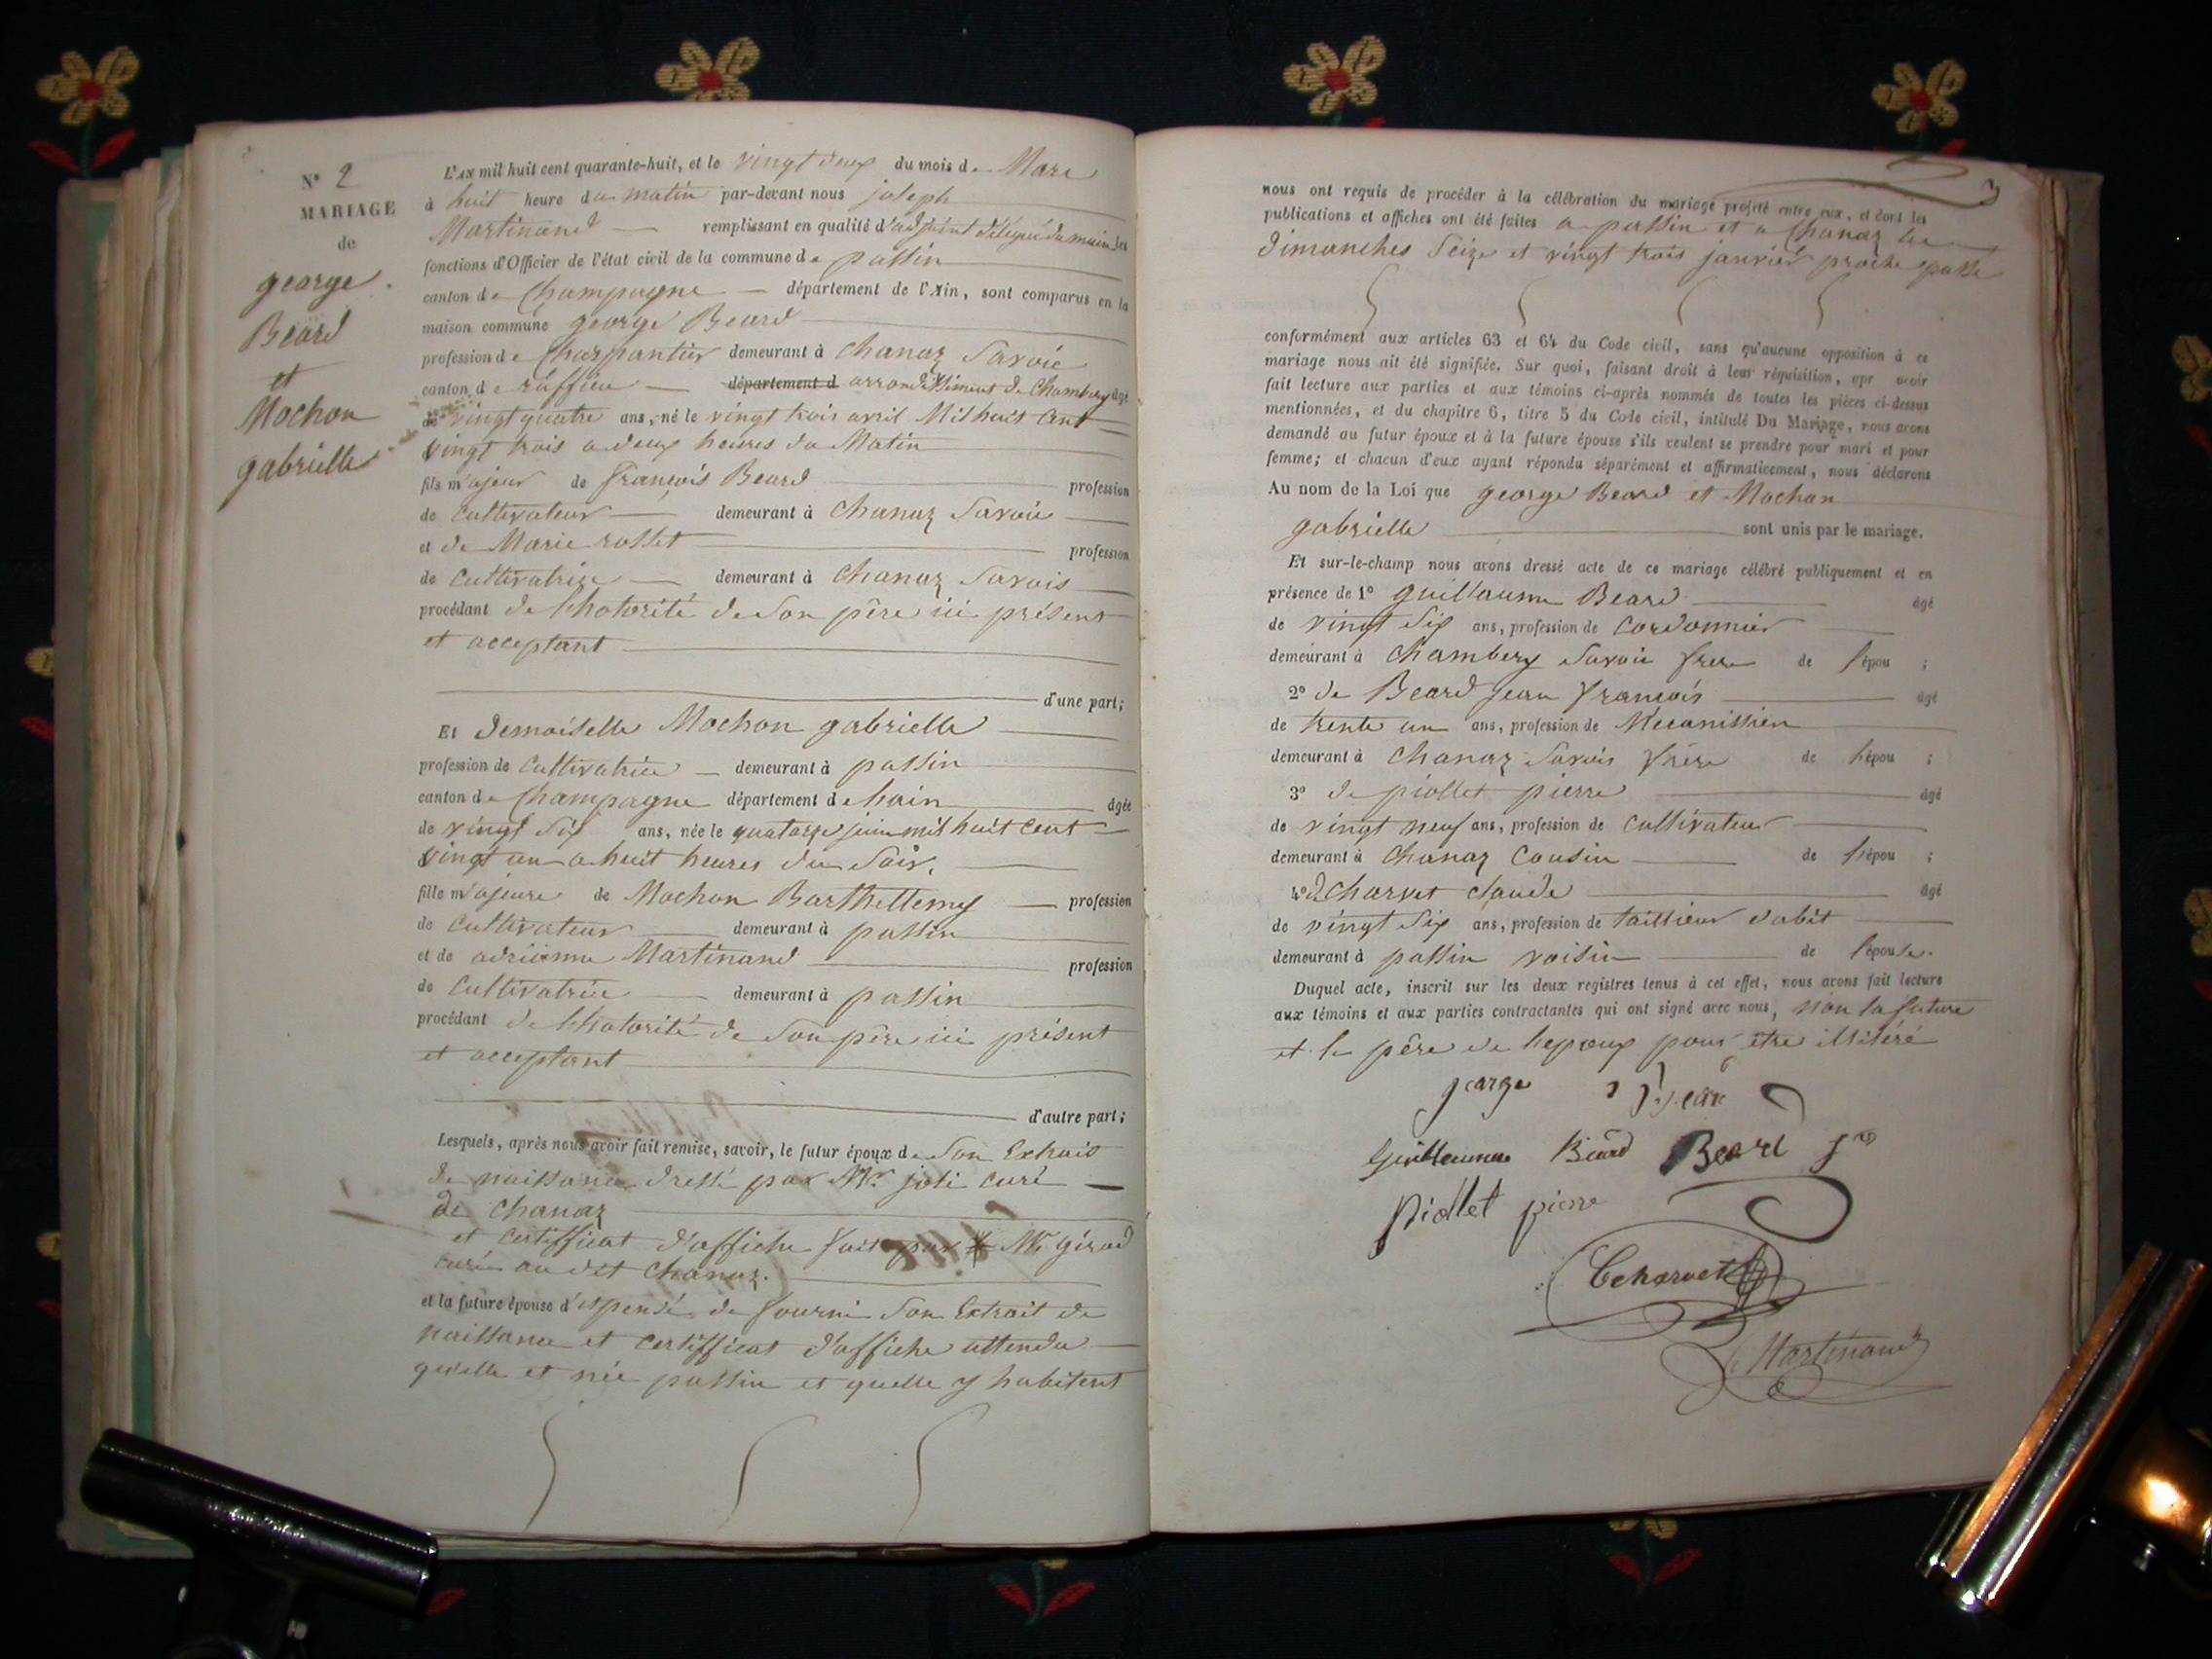 N° 2
MARIAGE
de
george
Beard
et
Mochon
gabrielle
L'AN mil huit cent quarante-huit, et le vingt deux du mois de Mars
à huit heure du matin par-devant nous joseph
Martinand remplissant en qualité d'adjoint délégué du maire les
fonctions d'Officier de l'état civil de la commune de passin
canton de Champagne département de l'Ain, sont comparus en la
maison commune george Beard
profession de Charpantier demeurant à Chanaz Savoie
canton de ruffieu département d arrondissement de Chambery âgé
de vingt quatre ans, né le vingt trois avril Mil huit Cent
vingt trois a deux heures du Matin
fils majeur de françois Beard profession
de Cultivateur demeurant à Chanaz Savoie
et de Marie rosset profession
de Cultivatrice demeurant à Chanaz Savoie
procédant de lhotorité de son père ici présent
et acceptant
d'une part;
Et demoiselle Mochon gabrielle
profession de Cultivatrice demeurant à passin
canton de Champagne département de hain âgée
de vingt six ans, née le quatorze juin mil huit cent
vingt un a huit heures du Soir.
fille majeure de Mochon Barthellemy profession
de Cultivateur demeurant à passin
et de adrienne Martinand profession
de Cultivatrice demeurant à passin
procédant de lhotorité de Son père ici présent
et acceptant
d'autre part;
Lesquels, après nous avoir fait remise, savoir, le futur époux de Son Extrait
de naissance dressé par Mr. joli curé
de Chanaz
et certifficat d'affiche fait par Mr. girod
curé au dit Chanaz.
et la future épouse d'ispensé de fourni Son Extrait de
naissance et certifficat d'affiche attendu
qu'elle et née passin et quelle y habitent
nous ont requis de procéder à la célébration du mariage projeté entre eux, et dont les
publications et affiches ont été faites a passin et a Chanaz les
dimanches Seize et vingt trois janvier proche passé
conformément aux articles 63 et 64 du Code civil, sans qu'aucune opposition à ce
mariage nous ait été signifiée. Sur quoi, faisant droit à leur réquisition, apr avoir
fait lecture aux parties et aux témoins ci-après nommés de toutes les pièces ci-dessus
mentionnées, et du chapitre 6, titre 5 du Code civil, intitulé Du Mariage, nous avons
demandé au futur époux et à la future épouse s'ils veulent se prendre pour mari et pour
femme; et chacun d'eux ayant répondu séparément et affirmativement, nous déclarons
Au nom de la Loi que george Beard et Mochon
gabrielle sont unis par le mariage.
Et sur-le-champ nous avons dressé acte de ce mariage célébré publiquement et en
présence de 1° guillaume Beard âgé
de vingt six ans, profession de Cordonnier
demeurant à Chambery Savoie frere de l'épou ;
2° de Beard jean françois âgé
de trente un ans, profession de Mecanissien
demeurant à Chanaz Savoie frère de l'épou ;
3° de piollet pierre âgé
de vingt neuf ans, profession de Cultivateur
demeurant à Chanaz Cousin de l'épou ;
4° d Charvet claude âgé
de vingt Six ans, profession de taillieur d'abit
demeurant à passin voisin de l'épouse.
Duquel acte, inscrit sur les deux registres tenus à cet effet, nous avons fait lecture
aux témoins et aux parties contractantes qui ont signé avec nous, Non la future
et le père de lepoux pour être illitéré
george Beard
Guillaume Béard Beard
Piollet pierre
C charvet
Martinand